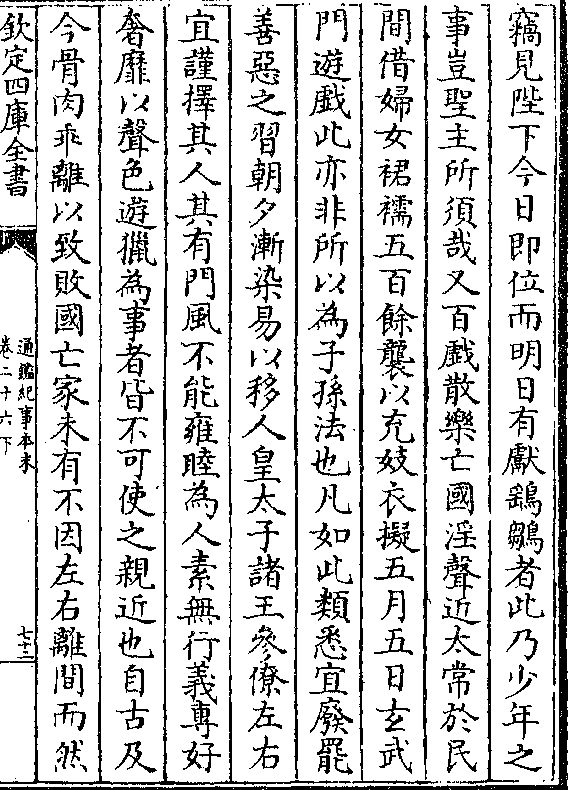 竊見陛下今日即位而明日有獻鷂鶵者此乃少年之
事豈聖主所須哉又百戲散樂亡國淫聲近太常於民
間借婦女裙襦五百餘襲以充妓衣擬五月五日玄武
門遊戲此亦非所以為子孫法也凡如此類悉宜廢罷
善惡之習朝夕漸染易以移人皇太子諸王參僚左右
宜謹擇其人其有門風不能雍睦為人素無行義專好
奢靡以聲色遊獵為事者皆不可使之親近也自古及
今骨肉乖離以致敗國亡家未有不因左右離間而然
欽定四庫全書
通鑑紀事本末
卷二十六下
七十二